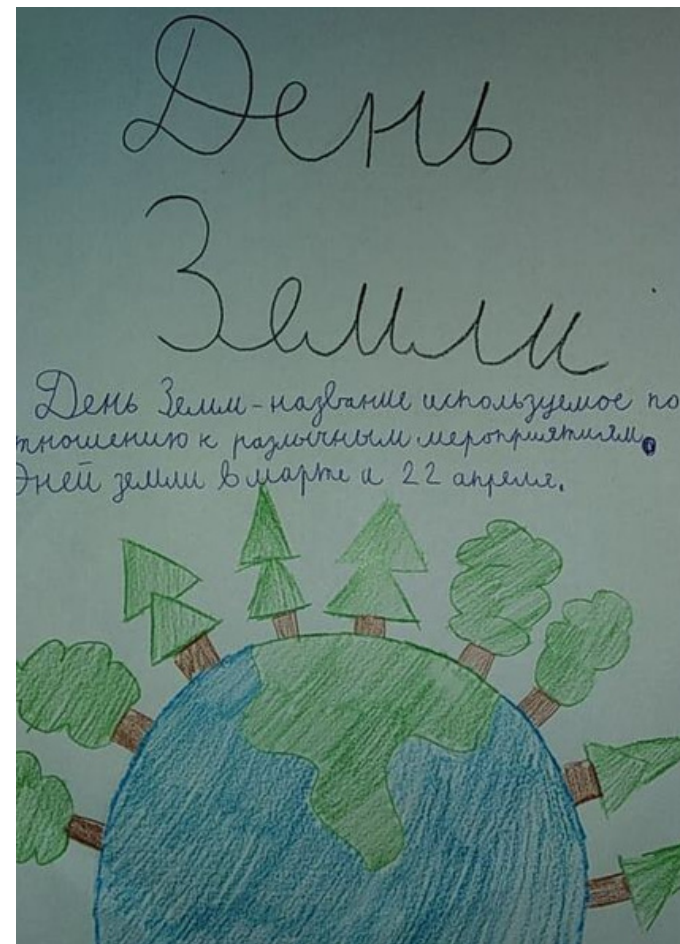 День
Земли
День Земли - название используемое по
тношению к различным мероприятиям.
Дней земли в марте и 22 апреля.